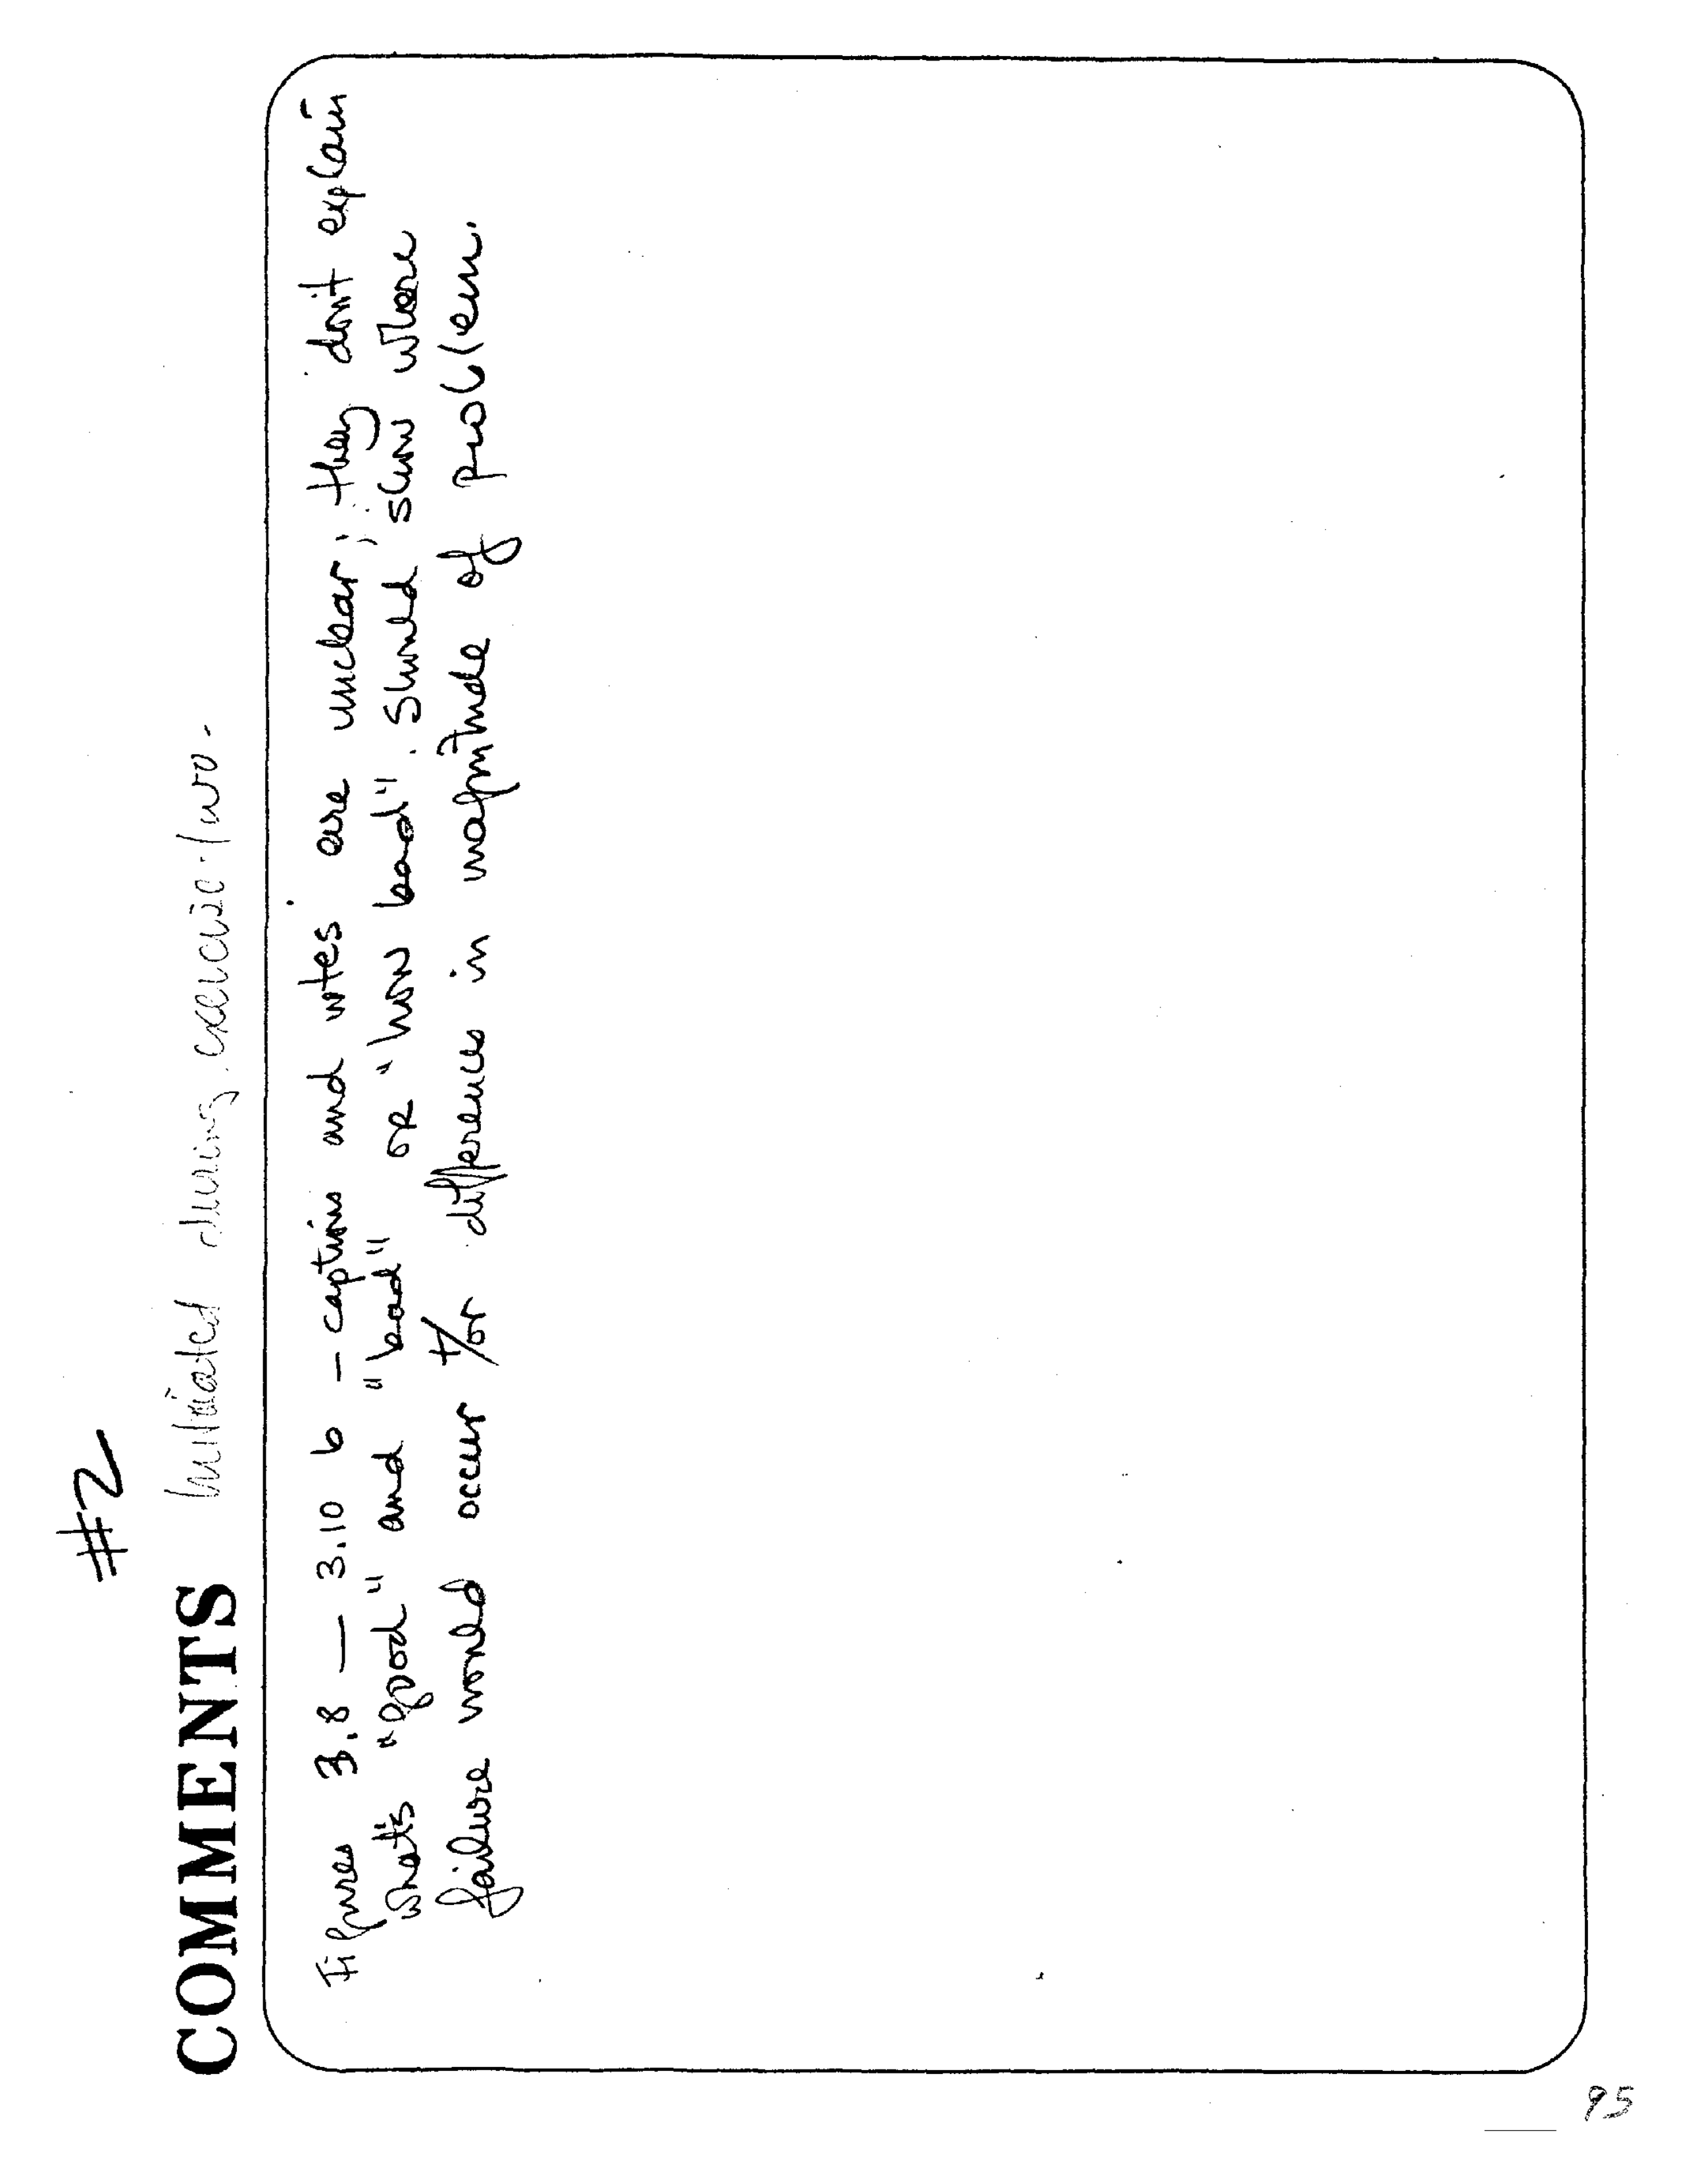 #2
COMMENTS Initiated during exercise two.
Figures 3.8 — 3.10 b – captions and notes are unclear; they don't explain
what's "good" and "bad" or "how bad". Should show where
failure would occur +/or differences in magnitude of problem.
95